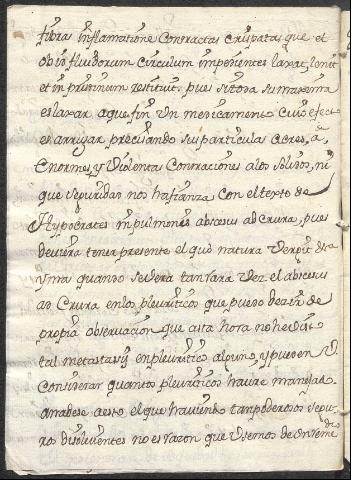 fibras inflamatione contractas Crispatas que el
ob in fluidorum circulum impedientes laxat, lenit
et in pristinum restituit. pues si toda su maxima
es laxar a que fin Vn medicamento cuio efect
es arrugar precisando sus particulas acres, a
enormes, y Violentas Contraciones a los solidos, ni
que seguridad nos hafianza con el texto de
Hypocrates in pulmones abscesus ad crura, pues
deviera tener presente el quo natura Vergit &
y mas quando se vera tan rara Vez el abscesus
ad Crura en los pleuriticos que puedo dezir de
propia observacion que asta hora no he visto
tal metastasis en pleuritico alguno, y pueden V.
Considerar quantos pleuriticos havre manejado
añadese a esto el que haviendo tan poderosos segu-
ros disolvientes no es razon que Vsemos de Vn reme
dio